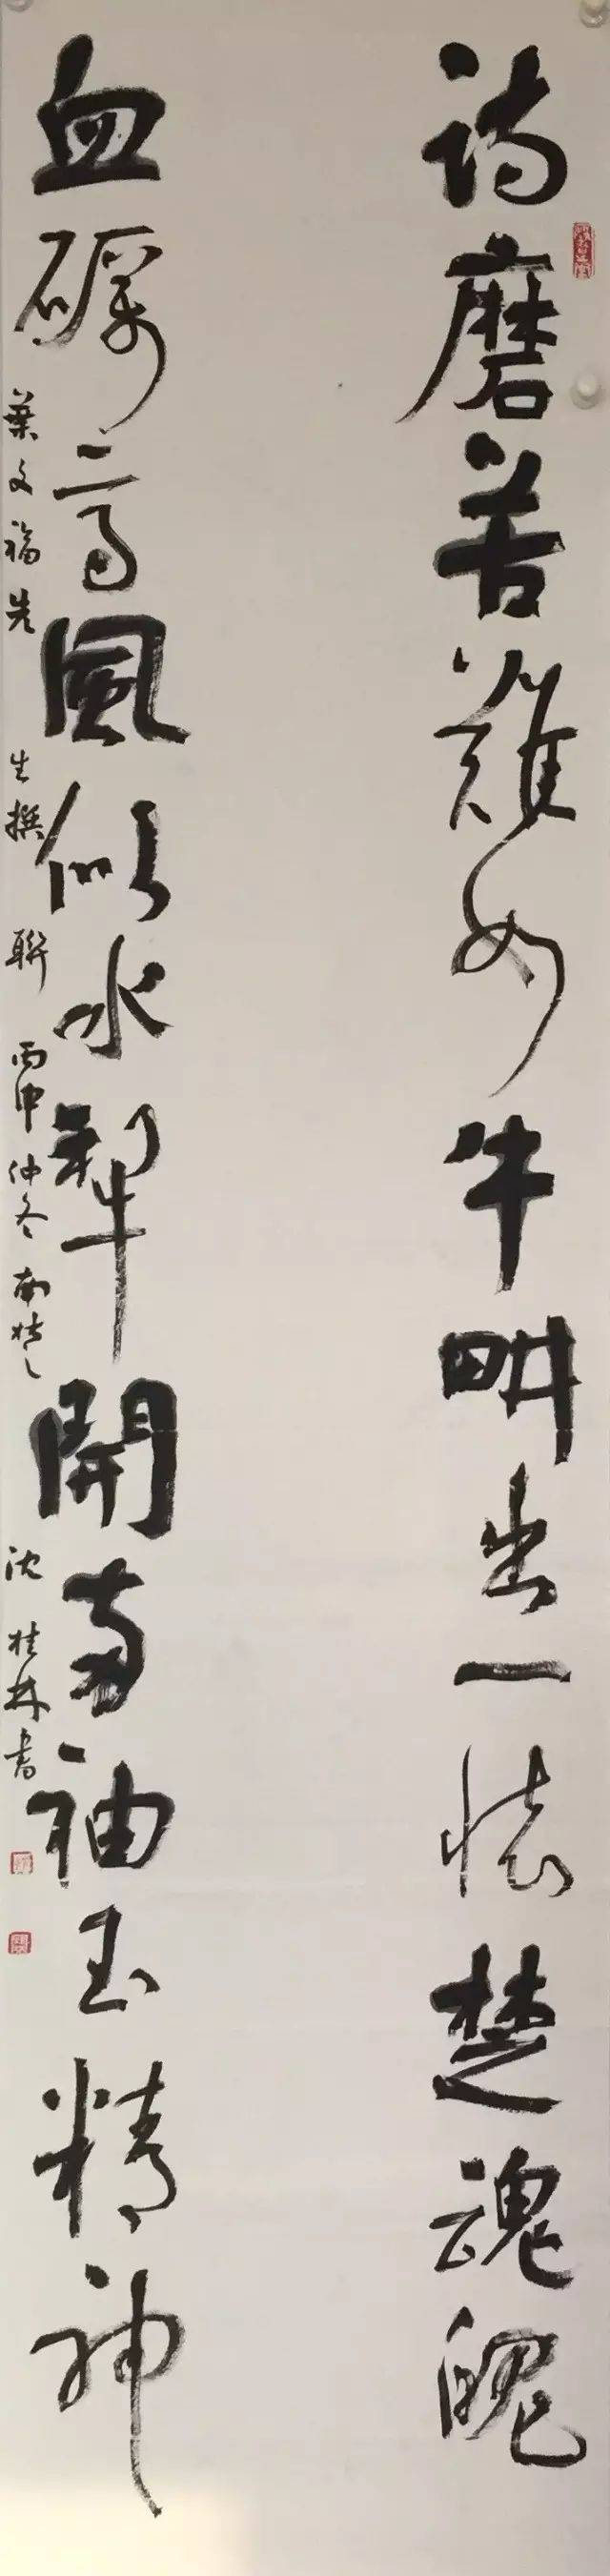 诗磨苦難如牛畊出一懷楚魂魄
血礪高風似水犁開兩袖玉精神
葉文福先生撰聯 丙申仲冬南楚 沈桂林书